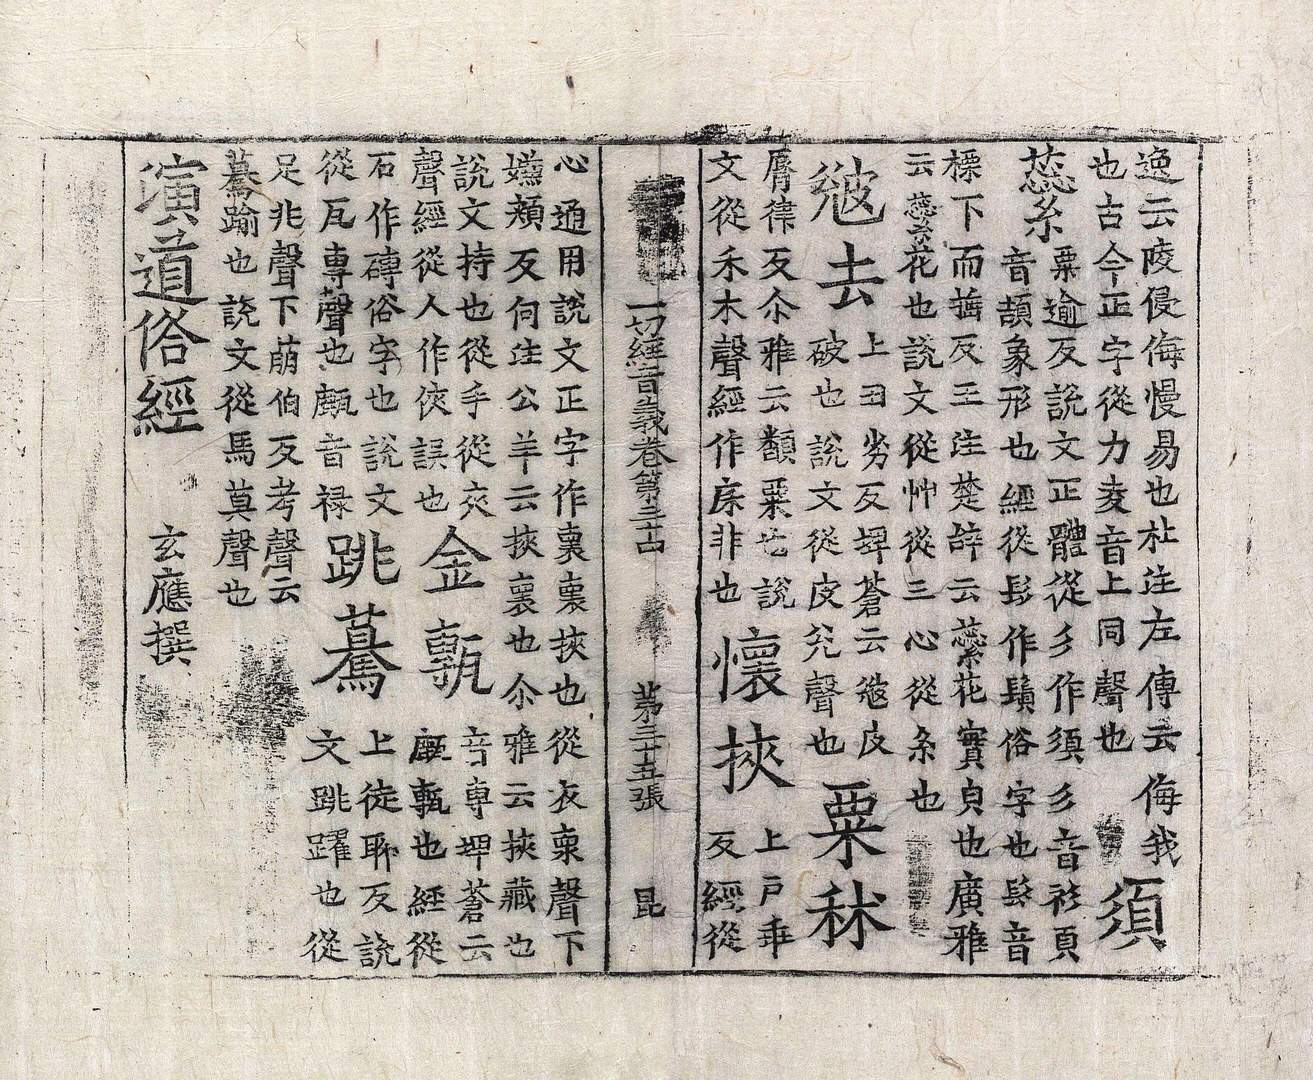 逸云陵侵侮慢易也杜注左傳云侮我
也古今正字從力夌音上同聲也
須
蘂
粟逾反說文正體從彡作須彡音衫頁
音頡象形也經從髟作鬚俗字也髟音
摽下而捶反王注楚辭云蘂花實貞也廣雅
云蘂花也說文從艸從三心從糸也
去
上丑劣反埤蒼云皮
破也說文從皮兊聲也
粟秫
脣律反尒雅云粟也說
文從禾木聲經作非也
懷挾
上戶乖
反經從
一切經音義卷第三十 第三十五張 昆
心通用說文正字作褱褱挾也從衣聲下
嫌頰反何注公羊云挾褱也尒雅云挾藏也
說文持也從手從夾
聲經從人作俠誤也
金甎
音專埤蒼云
甎也經從
石作磚俗字也說文
從瓦專聲也音禄
跳驀
上徒聊反說
文跳躍也從
足兆聲下萌伯反考聲云
驀踰也說文從馬莫聲也
演道俗經 玄應撰